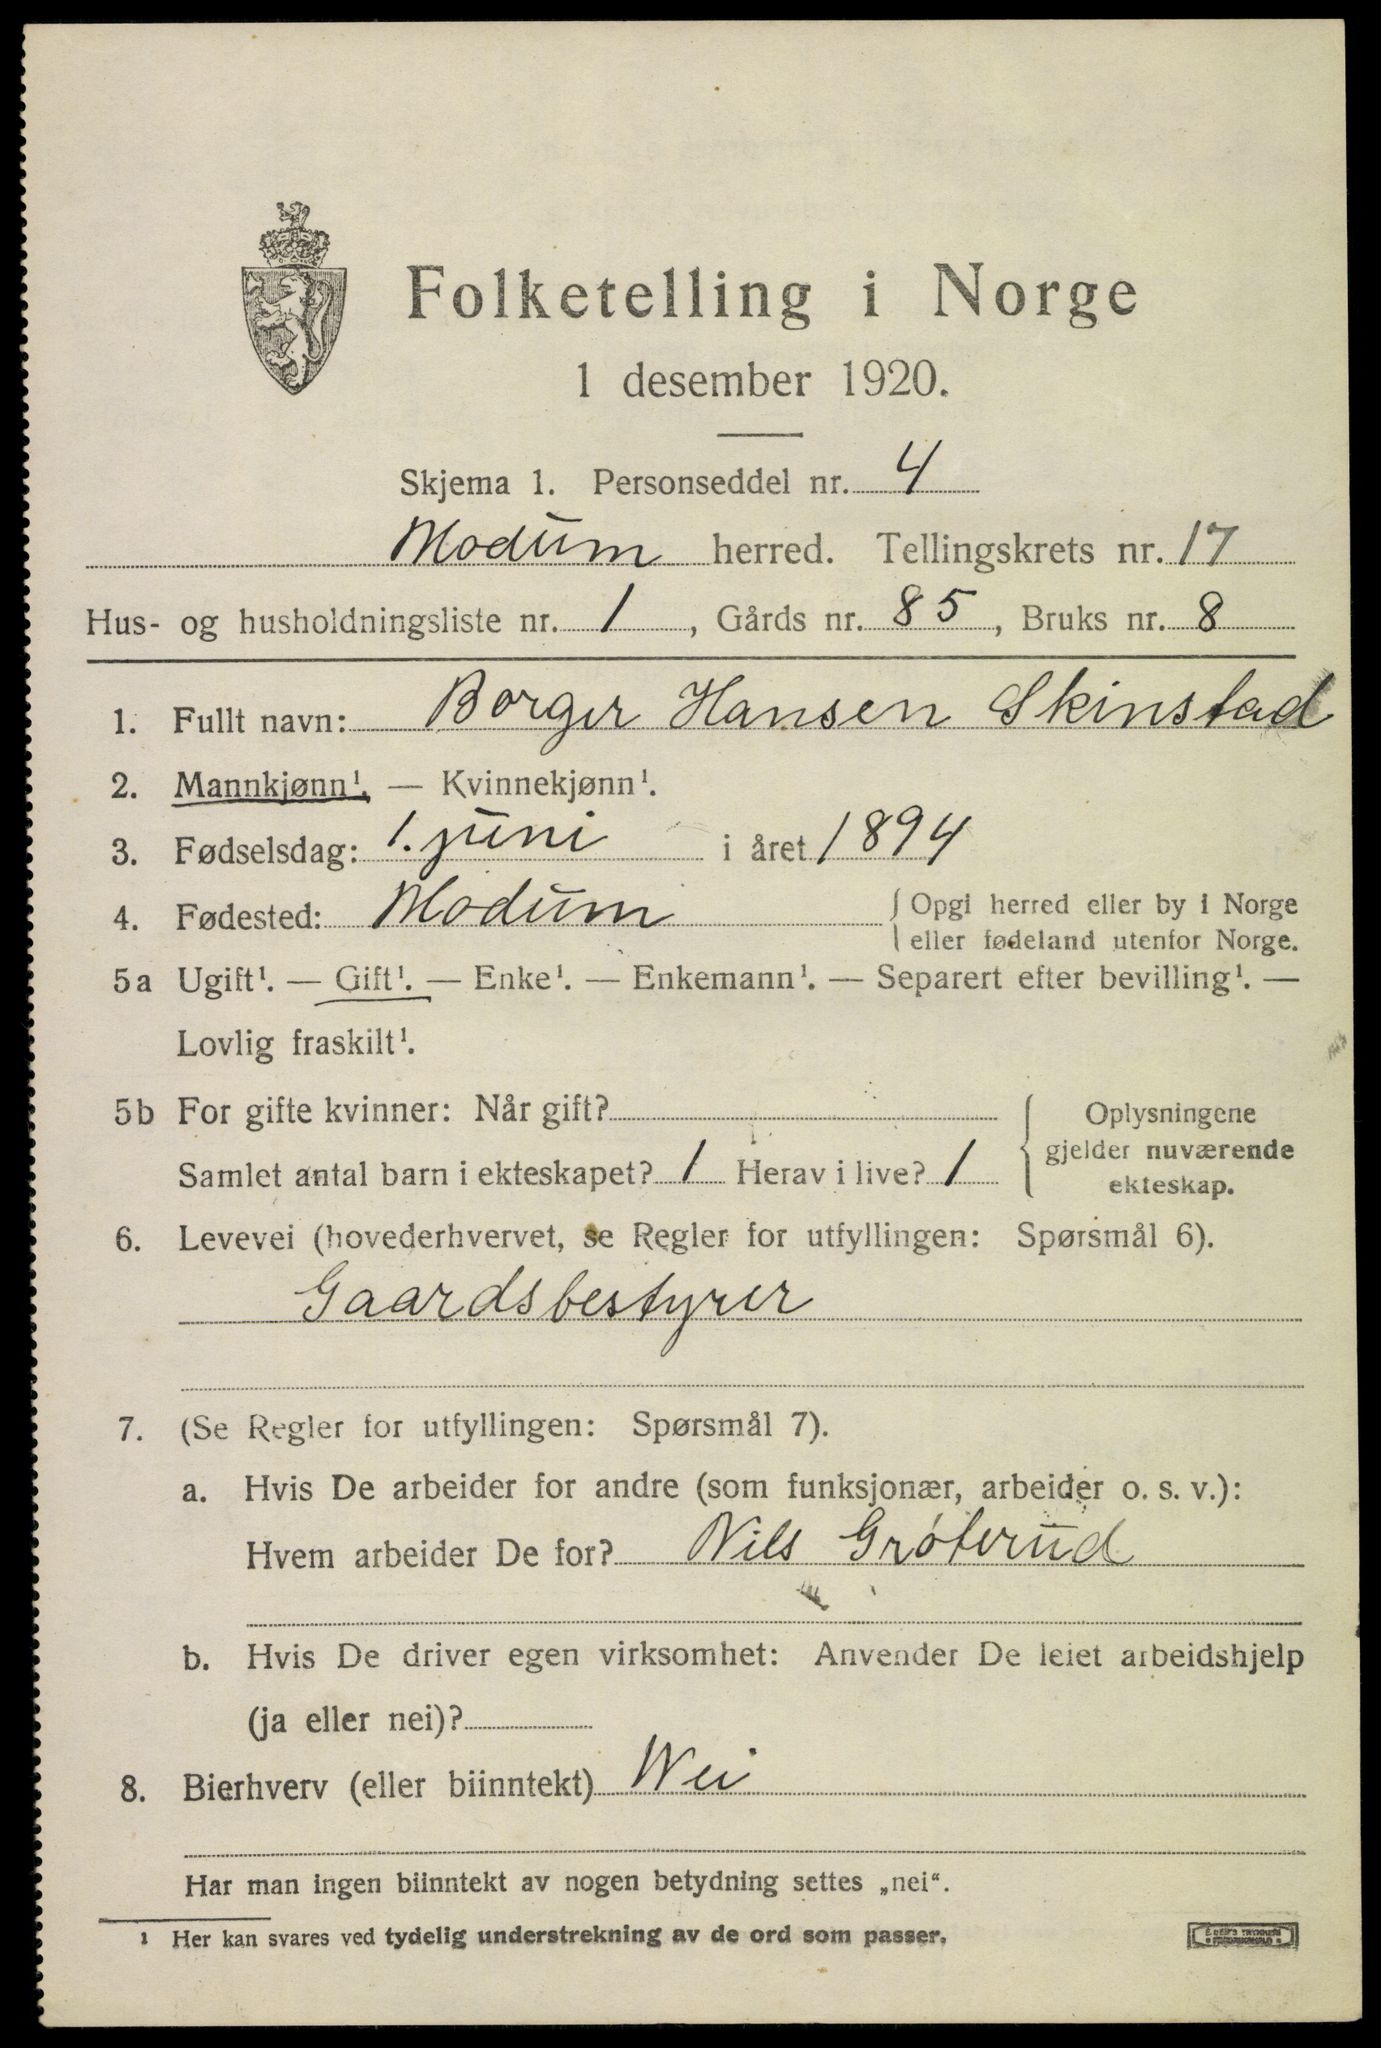 Folketelling i Norge
1 desember 1920.
Skjema 1. Personseddel nr. 4
Modum herred. Tellingskrets nr. 17
Hus- og husholdningsliste nr. 1, Gårds nr. 85, Bruks nr. 8
1. Fullt navn: Borger Hansen Skinstad
2. Mannkjønn¹. — Kvinnekjønn¹.
3. Fødselsdag: 1. juni i året 1894
4. Fødested: Modum { Opgi herred eller by i Norge
eller fødeland utenfor Norge.
5a Ugift¹. — Gift¹. — Enke¹. — Enkemann¹. — Separert efter bevilling¹. —
Lovlig fraskilt¹.
5b For gifte kvinner: Når gift?
Samlet antal barn i ekteskapet? 1 Herav i live? 1
{ Oplysningene
gjelder nuværende
ekteskap.
6. Levevei (hovederhvervet, se Regler for utfyllingen: Spørsmål 6).
Gaardsbestyrer
7. (Se Regler for utfyllingen: Spørsmål 7).
a. Hvis De arbeider for andre (som funksjonær, arbeider o. s. v.):
Hvem arbeider De for? Nils Grøterud
b. Hvis De driver egen virksomhet: Anvender De leiet arbeidshjelp
(ja eller nei)?
8. Bierhverv (eller biinntekt) Nei
Har man ingen biinntekt av nogen betydning settes „nei“.
¹ Her kan svares ved tydelig understrekning av de ord som passer.